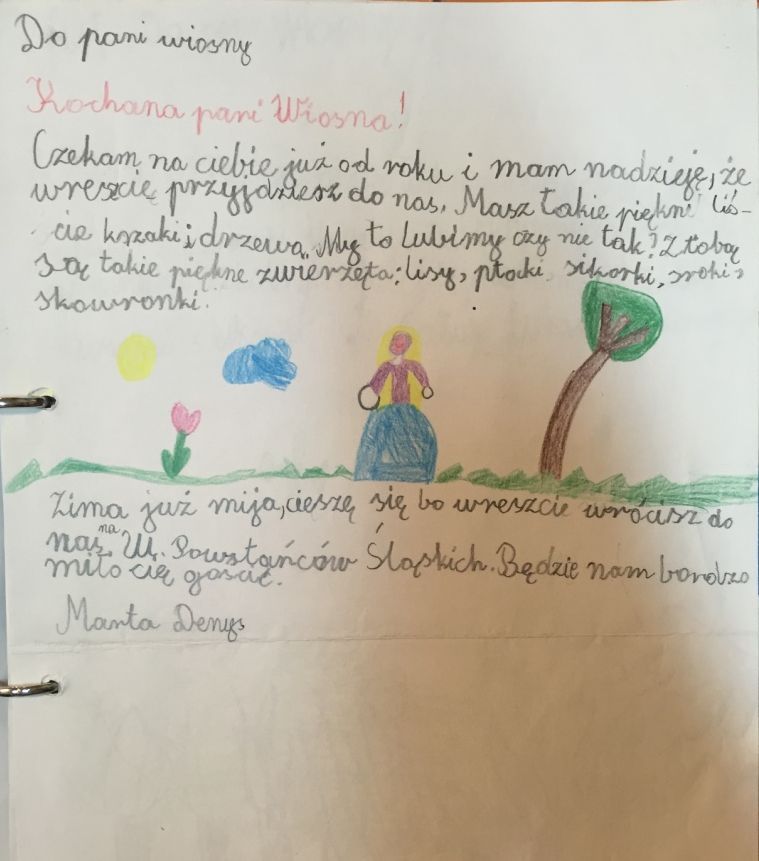 Do pani wiosny
Kochana pani Wiosna!
Czekam na ciebie już od roku i mam nadzieję, że
wreszcie przyjdziesz do nas. Masz takie piękne liś-
cie krzaki i drzewa. My to lubimy czy nie tak? Z tobą
są takie piękne zwierzęta: lisy, ptaki, sikorki, sroki,
skowronki.
Zima już mija, cieszę się bo wreszcie wrócisz do
nas na Ul. Powstańców Śląskich. Będzie nam bardzo
miło cię gościć.
Marta Denys